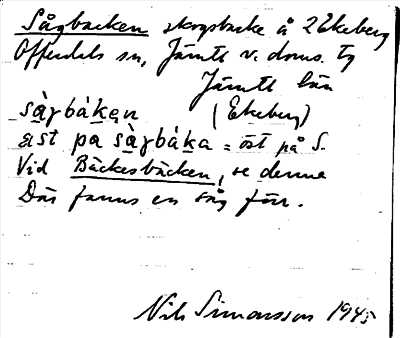 Sågbacken skogsbacke å 2 Ekeberg
Offerdals sn, Jämtl v. doms. tg
Jämtl län
sàgbákan (Ekeberg)
åst pa sàgbáka = öst på S.
Vid Bäckesbäcken, se denne
Där fanns en såg förr.
Nils Simonsson 1945